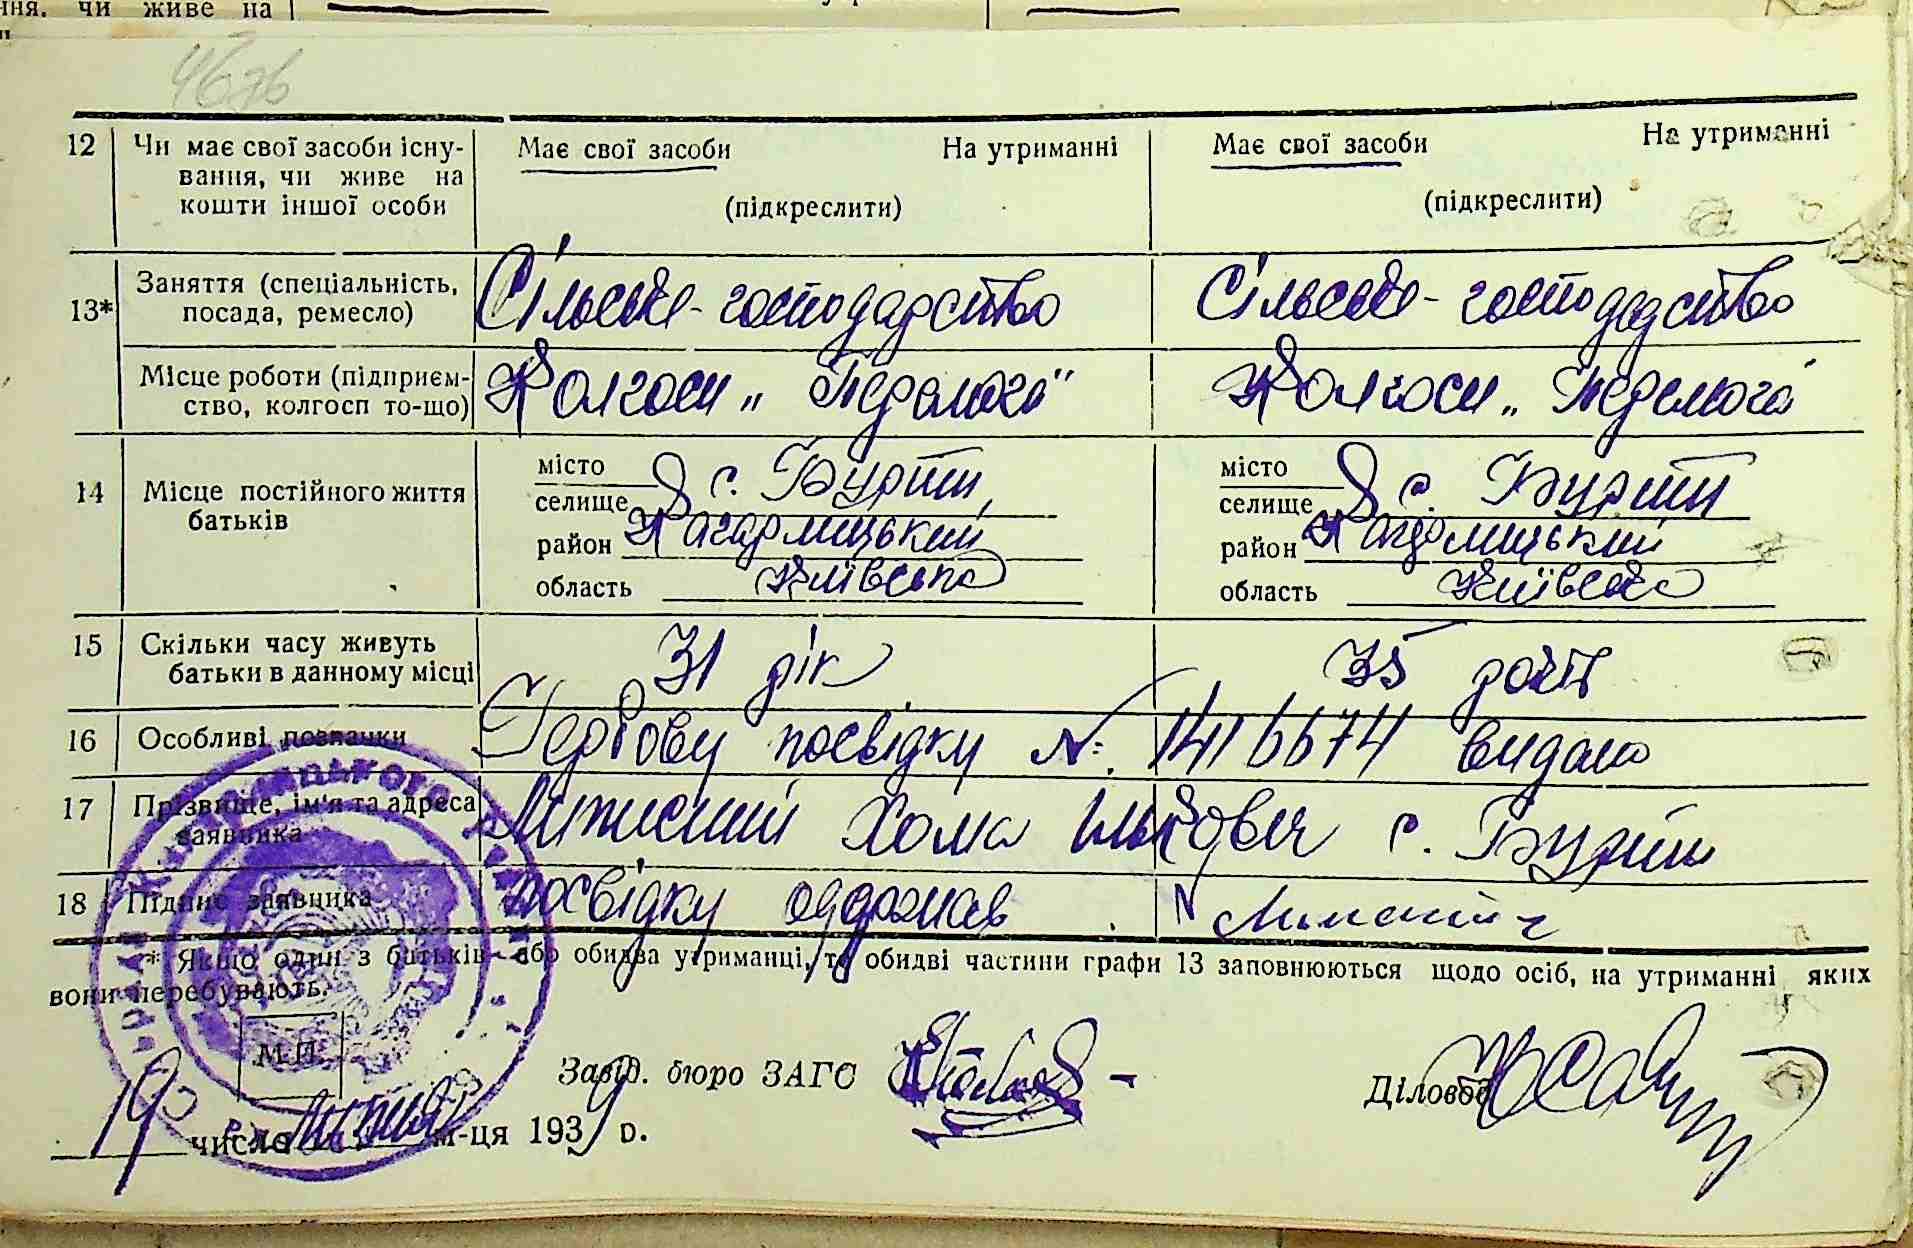 чи живе на
46зв
12 Чи має свої засоби існу- Має свої засоби На утриманні Має свої засоби На утриманні
вання, чи живе на
кошти іншої особи (підкреслити) (підкреслити)
Заняття (спеціальність, Сільське-господарство Сільське-господарство
13* посада, ремесло)
Місце роботи (підприєм- Колгосп „Перемога" Колгосп „Перемога"
ство, колгосп то-що)
місто місто
14 Місце постійного життя селище с. Бурти селище с. Бурти
батьків район Кагарлицький район Кагарлицький
область Київська область Київська
15 Скільки часу живуть 31 рік 35 років
батьки в данному місці
16 Особливі познаки Гербову посвідку №. 1416674 видано
17 Прізвище, ім'я та адреса ХомаІлькович с. Бурти
заявника
18 Підпис заявника посвідку одержав
* Якщо один з батьків або обидва утриманці, то обидві частини графи 13 заповнюються щодо осіб, на утриманні яких
вони перебувають.
М.П.
Завід. бюро ЗАГС Діловод
19 число липня м-ця 1939 р.